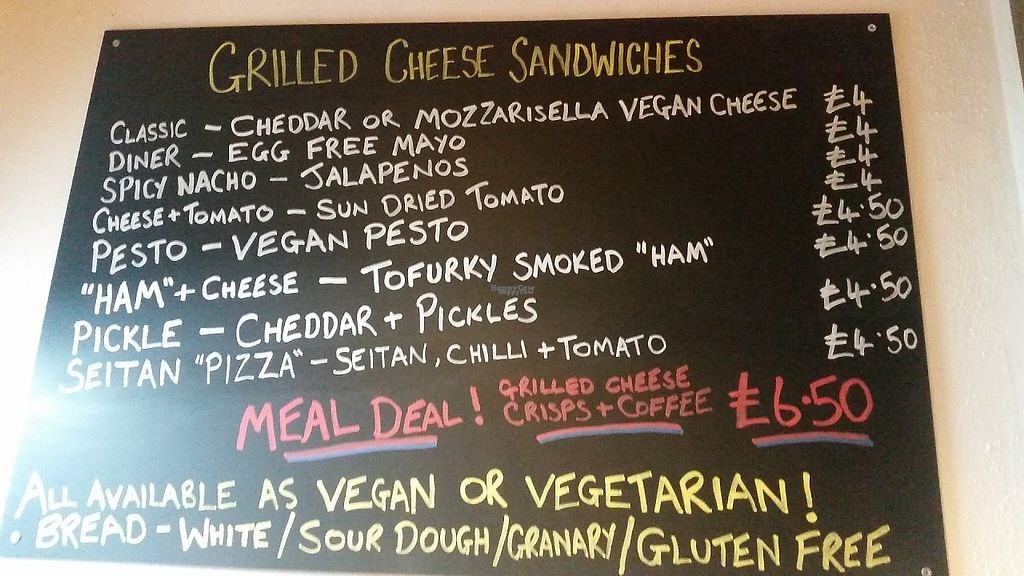 GRILLED CHEESE SANDWICHES
CLASSIC – CHEDDAR OR MOZZARISELLA VEGAN CHEESE £4
DINER – EGG FREE MAYO £4
SPICY NACHO – JALAPENOS £4
CHEESE + TOMATO – SUN DRIED TOMATO £4
PESTO – VEGAN PESTO £4.50
"HAM" + CHEESE – TOFURKY SMOKED "HAM" £4.50
PICKLE – CHEDDAR + PICKLES £4.50
SEITAN "PIZZA" – SEITAN, CHILLI + TOMATO £4.50
MEAL DEAL! GRILLED CHEESE
CRISPS + COFFEE £6.50
ALL AVAILABLE AS VEGAN OR VEGETARIAN!
BREAD – WHITE / SOUR DOUGH / GRANARY / GLUTEN FREE
HappyCow
HappyCow